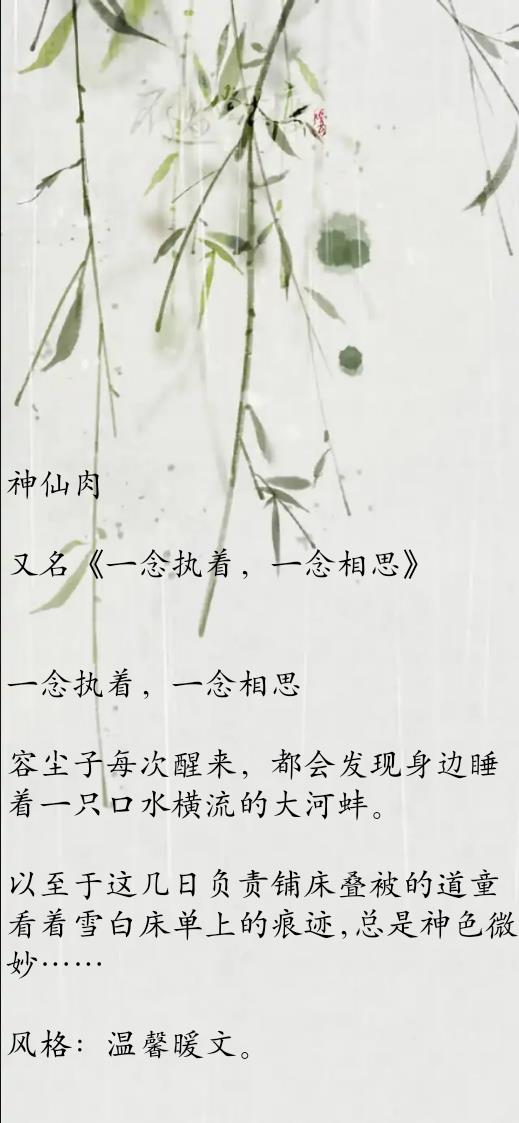 神仙肉
又名《一念执着，一念相思》
一念执着，一念相思
容尘子每次醒来，都会发现身边睡
着一只口水横流的大河蚌。
以至于这几日负责铺床叠被的道童
看着雪白床单上的痕迹,总是神色微
妙……
风格：温馨暖文。